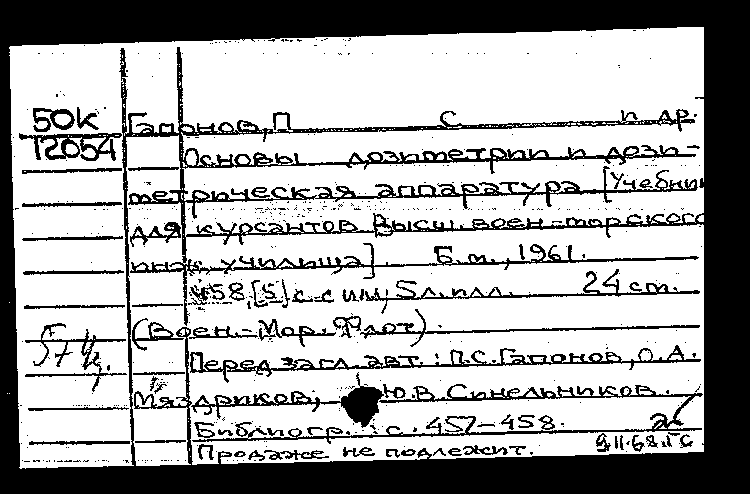 50к Гапонов, П С и др.
12054 Основы дозиметрии и дози-
метрическая аппаратура [Учебник
для курсантов Высш. воен-морского
инж. училища]. Б.м., 1961.
458, [5] с. с илл; 5 л. илл. 24 см.
(Воен.-Мор. Флот).
Перед загл. авт.: П.С. Гапонов, О.А.
Мяздриков, Ю.В. Синельников.
Библиогр. : с. 457-458.
Продаже не подлежит. 9.II.68.